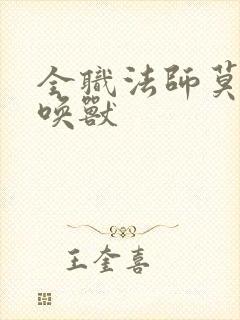 全職法師莫
喚獸
王奎喜